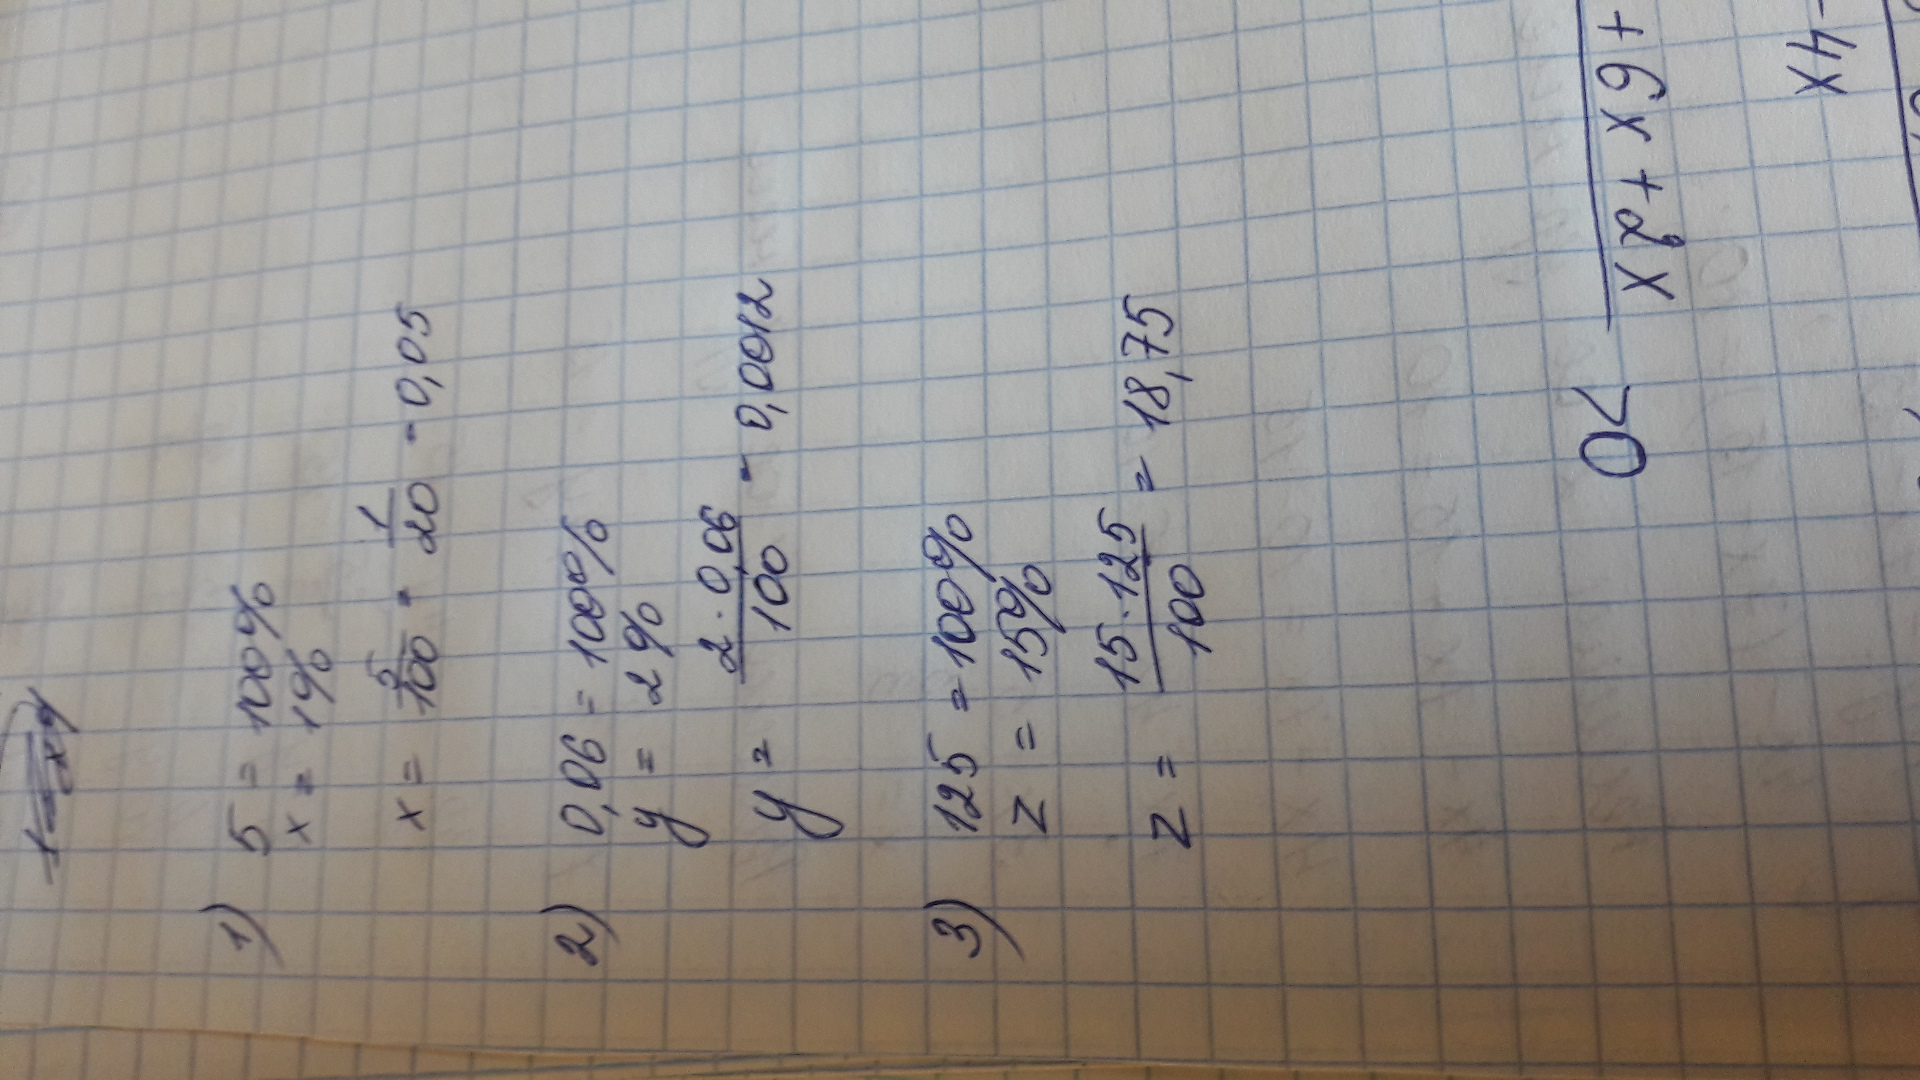 1)
5 = 100%
x = 1%
x = 5/100 = 1/20 = 0,05
2)
0,06 = 100%
y = 2%
y = 2·0,06/100 = 0,0012
3)
125 = 100%
z = 15%
z = 15·125/100 = 18,75
+ 6x + 2x
>0
- 4x